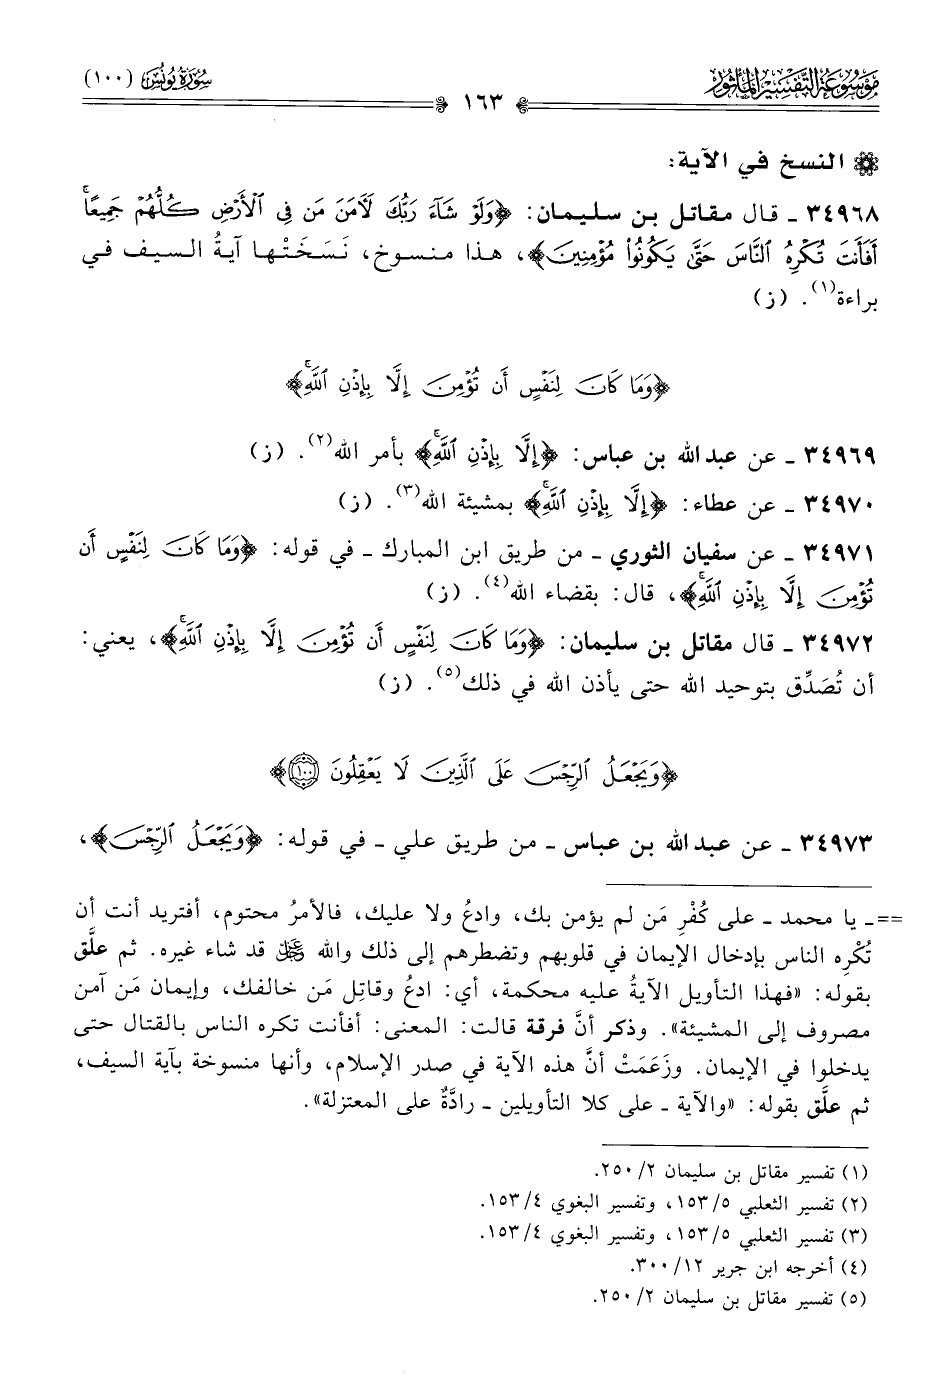 مَوْسُوعَة التَّفْسِيْرِ المَأْثُور
سُورَةُ يُونُس (١٠٠)
١٦٣
النسخ في الآية:
٣٤٩٦٨ ـ قال مقاتل بن سليمان: ﴿وَلَوْ شَآءَ رَبُّكَ لَآمَنَ مَن فِى ٱلْأَرْضِ كُلُّهُمْ جَمِيعًاۚ
أَفَأَنتَ تُكْرِهُ ٱلنَّاسَ حَتَّىٰ يَكُونُوا۟ مُؤْمِنِينَ﴾، هذا منسوخ، نَسَخَتْها آيةُ السيف في
براءة(١). (ز)
﴿وَمَا كَانَ لِنَفْسٍ أَن تُؤْمِنَ إِلَّا بِإِذْنِ ٱللَّهِۚ﴾
٣٤٩٦٩ ـ عن عبد الله بن عباس: ﴿إِلَّا بِإِذْنِ ٱللَّهِۚ﴾ بأمر الله(٢). (ز)
٣٤٩٧٠ ـ عن عطاء: ﴿إِلَّا بِإِذْنِ ٱللَّهِۚ﴾ بمشيئة الله(٣). (ز)
٣٤٩٧١ ـ عن سفيان الثوري ـ من طريق ابن المبارك ـ في قوله: ﴿وَمَا كَانَ لِنَفْسٍ أَن
تُؤْمِنَ إِلَّا بِإِذْنِ ٱللَّهِۚ﴾، قال: بقضاء الله(٤). (ز)
٣٤٩٧٢ ـ قال مقاتل بن سليمان: ﴿وَمَا كَانَ لِنَفْسٍ أَن تُؤْمِنَ إِلَّا بِإِذْنِ ٱللَّهِۚ﴾، يعني:
أن تُصَدِّق بتوحيد الله حتى يأذن الله في ذلك(٥). (ز)
﴿وَيَجْعَلُ ٱلرِّجْسَ عَلَى ٱلَّذِينَ لَا يَعْقِلُونَ ١٠٠﴾
٣٤٩٧٣ ـ عن عبد الله بن عباس ـ من طريق علي ـ في قوله: ﴿وَيَجْعَلُ ٱلرِّجْسَ﴾،
==ـ يا محمد ـ على كُفْرِ مَن لم يؤمن بك، وادعُ ولا عليك، فالأمرُ محتوم، أفتريد أنت أن
تُكْرِه الناس بإدخال الإيمان في قلوبهم وتضطرهم إلى ذلك والله ﷻ قد شاء غيره. ثم علَّق
بقوله: «فهذا التأويل الآيةُ عليه محكمة، أي: ادعُ وقاتِل مَن خالفك، وإيمان مَن آمن
مصروف إلى المشيئة». وذكر أنَّ فرقة قالت: المعنى: أفأنت تكره الناس بالقتال حتى
يدخلوا في الإيمان. وزَعَمَتْ أنَّ هذه الآية في صدر الإسلام، وأنها منسوخة بآية السيف،
ثم علَّق بقوله: «والآية ـ على كلا التأويلين ـ رادَّةٌ على المعتزلة».
(١) تفسير مقاتل بن سليمان ٢/٢٥٠.
(٢) تفسير الثعلبي ٥/١٥٣، وتفسير البغوي ٤/١٥٣.
(٣) تفسير الثعلبي ٥/١٥٣، وتفسير البغوي ٤/١٥٣.
(٤) أخرجه ابن جرير ١٢/٣٠٠.
(٥) تفسير مقاتل بن سليمان ٢/٢٥٠.